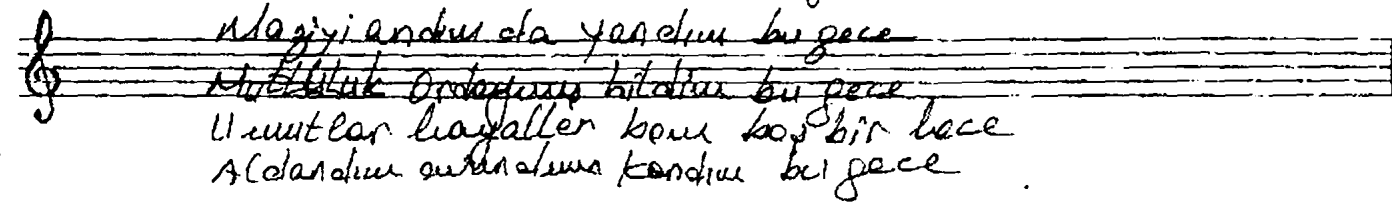 Maziyi andım da yandım bu gece
Mutluluk ordaymış bildim bu gece
Umutlar hayaller bom boş bir hece
Aldandım avundum kandım bu gece